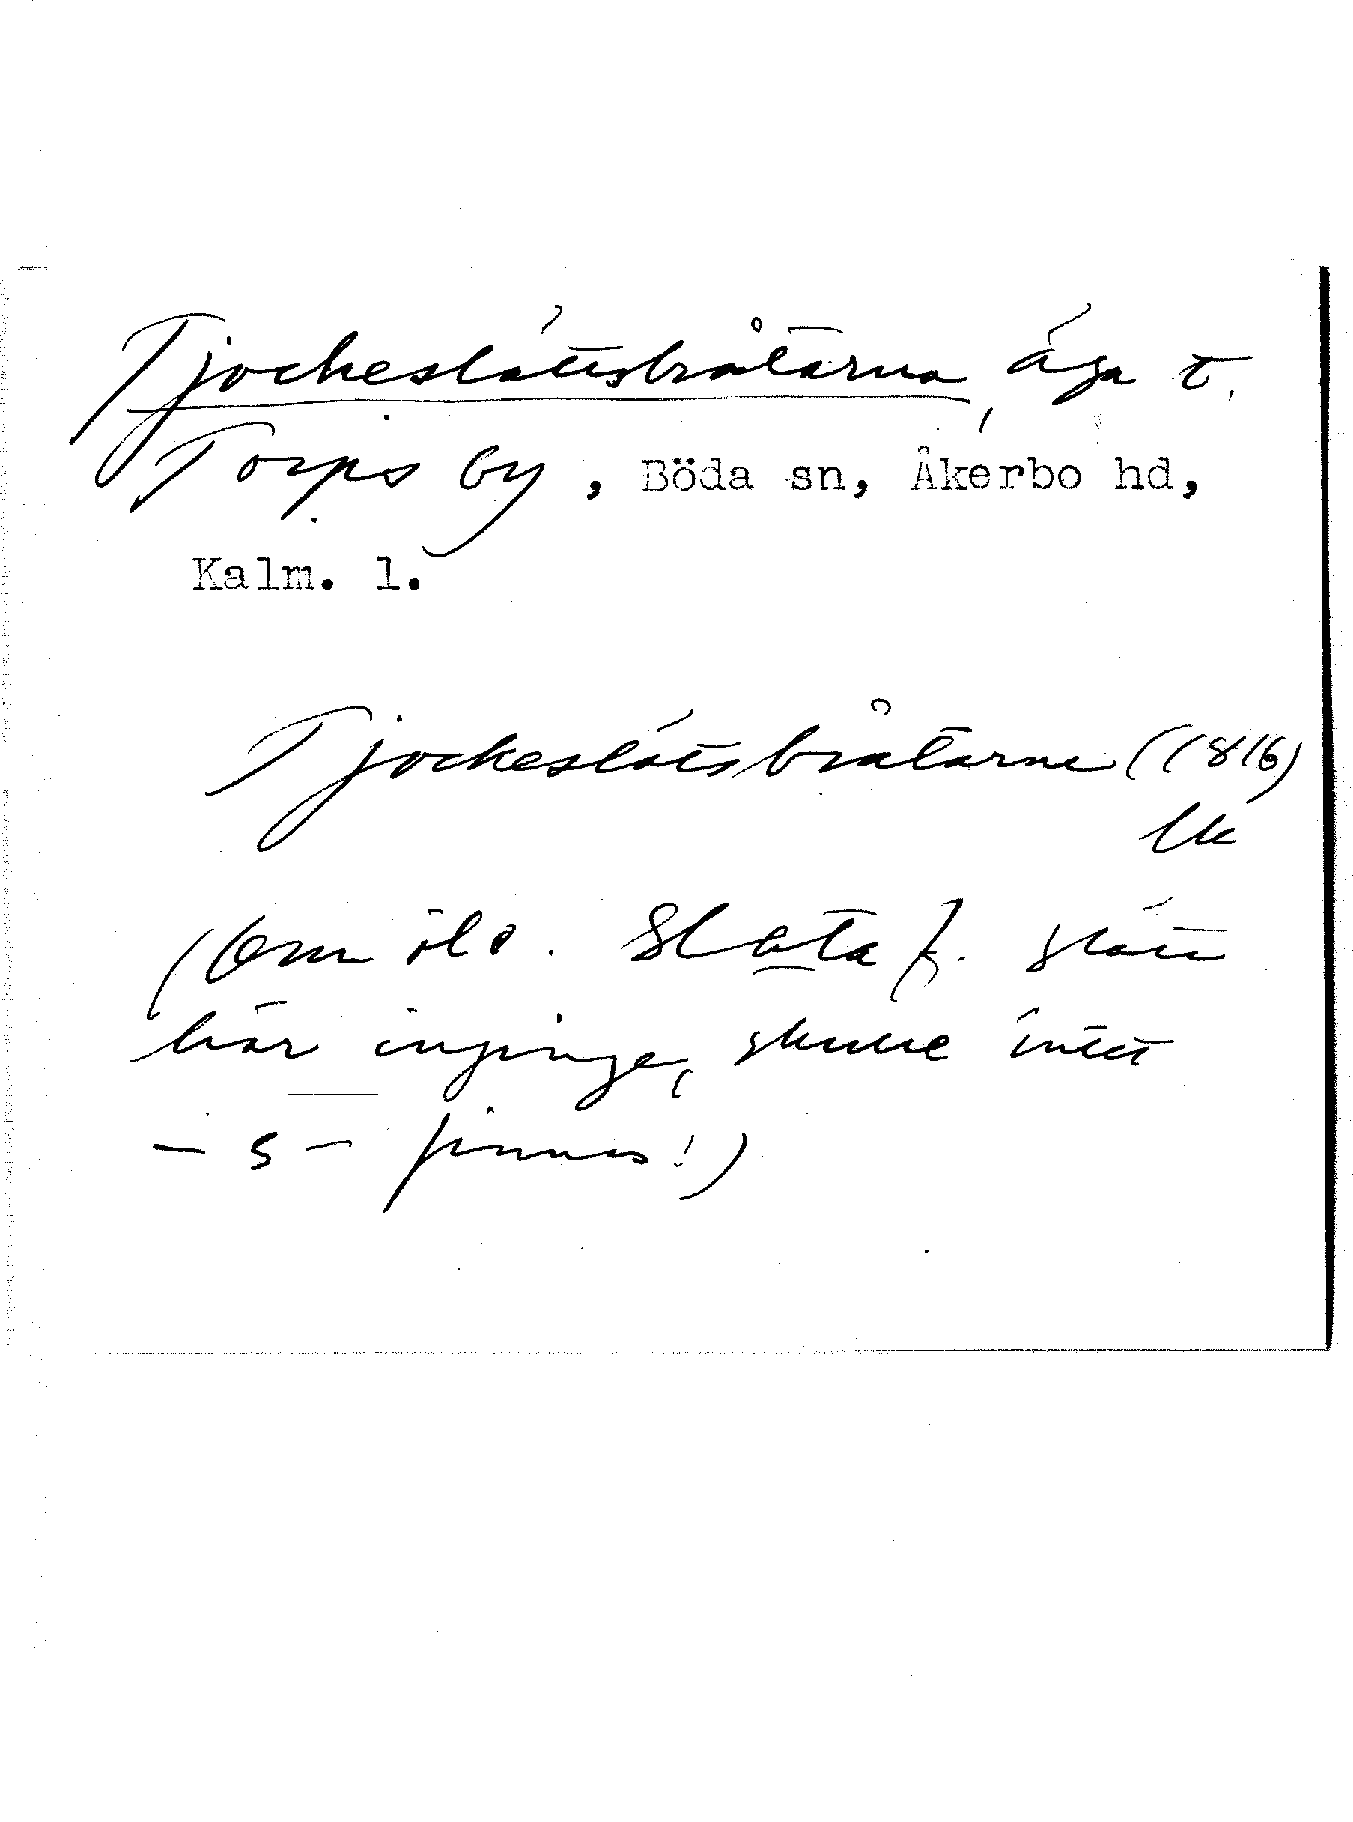 Tjockeslättsbråtarna, äga t.
Torps by, Böda sn, Åkerbo hd,
Kalm. l.
Tjockeslätsbråtarne (1816)
lk
(Om öl. slata f. slätt
här inginge, skulle intet
- s - finnas!)